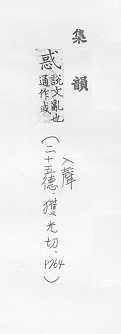 集韻
惑
說文亂也
通作或
入聲
(二十五德·獲北切·P764)